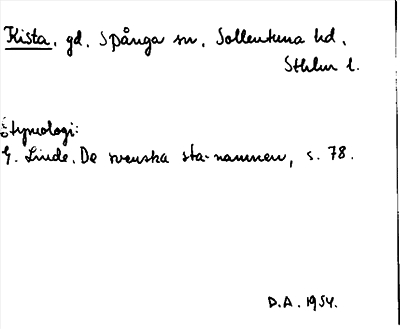 Kista. gd. Spånga sn. Sollentuna hd.
Sthlm l.
Etymologi:
G. Linde. De svenska sta-namnen, s. 78.
D.A. 1954.